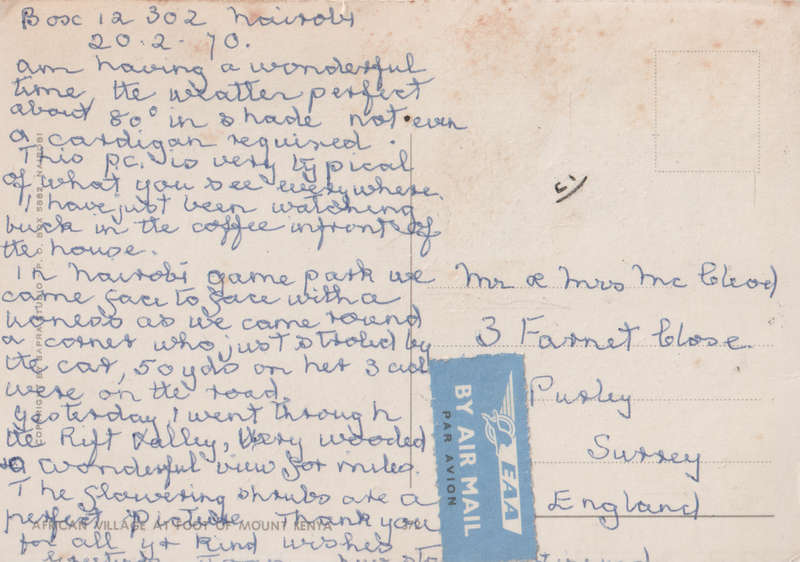 Box 12302 Nairobi
20.2.70.
am having a wonderful
time the weather perfect
about 80° in shade not even
a cardigan required.
This p.c. is very typical
of what you see everywhere.
I have just been watching
buck in the coffee infront of
the house.
In Nairobi game park we
came face to face with a
lioness as we came round
a corner who just strolled by
the car, 50 yds on her 3 cubs
were on the road.
Yesterday I went through
the Rift Valley, very wooded
a wonderful view for miles.
The flowering shrubs are a
perfect picture Thank you
for all yr kind wishes
Mr & Mrs Mc Cleod
3 Farnet Close.
Purley
Surrey
England
BY AIR MAIL
PAR AVION
EAA
AFRICAN VILLAGE AT FOOT OF MOUNT KENYA
COPYRIGHT BY SAPRA STUDIO P. O. BOX 5882, NAIROBI